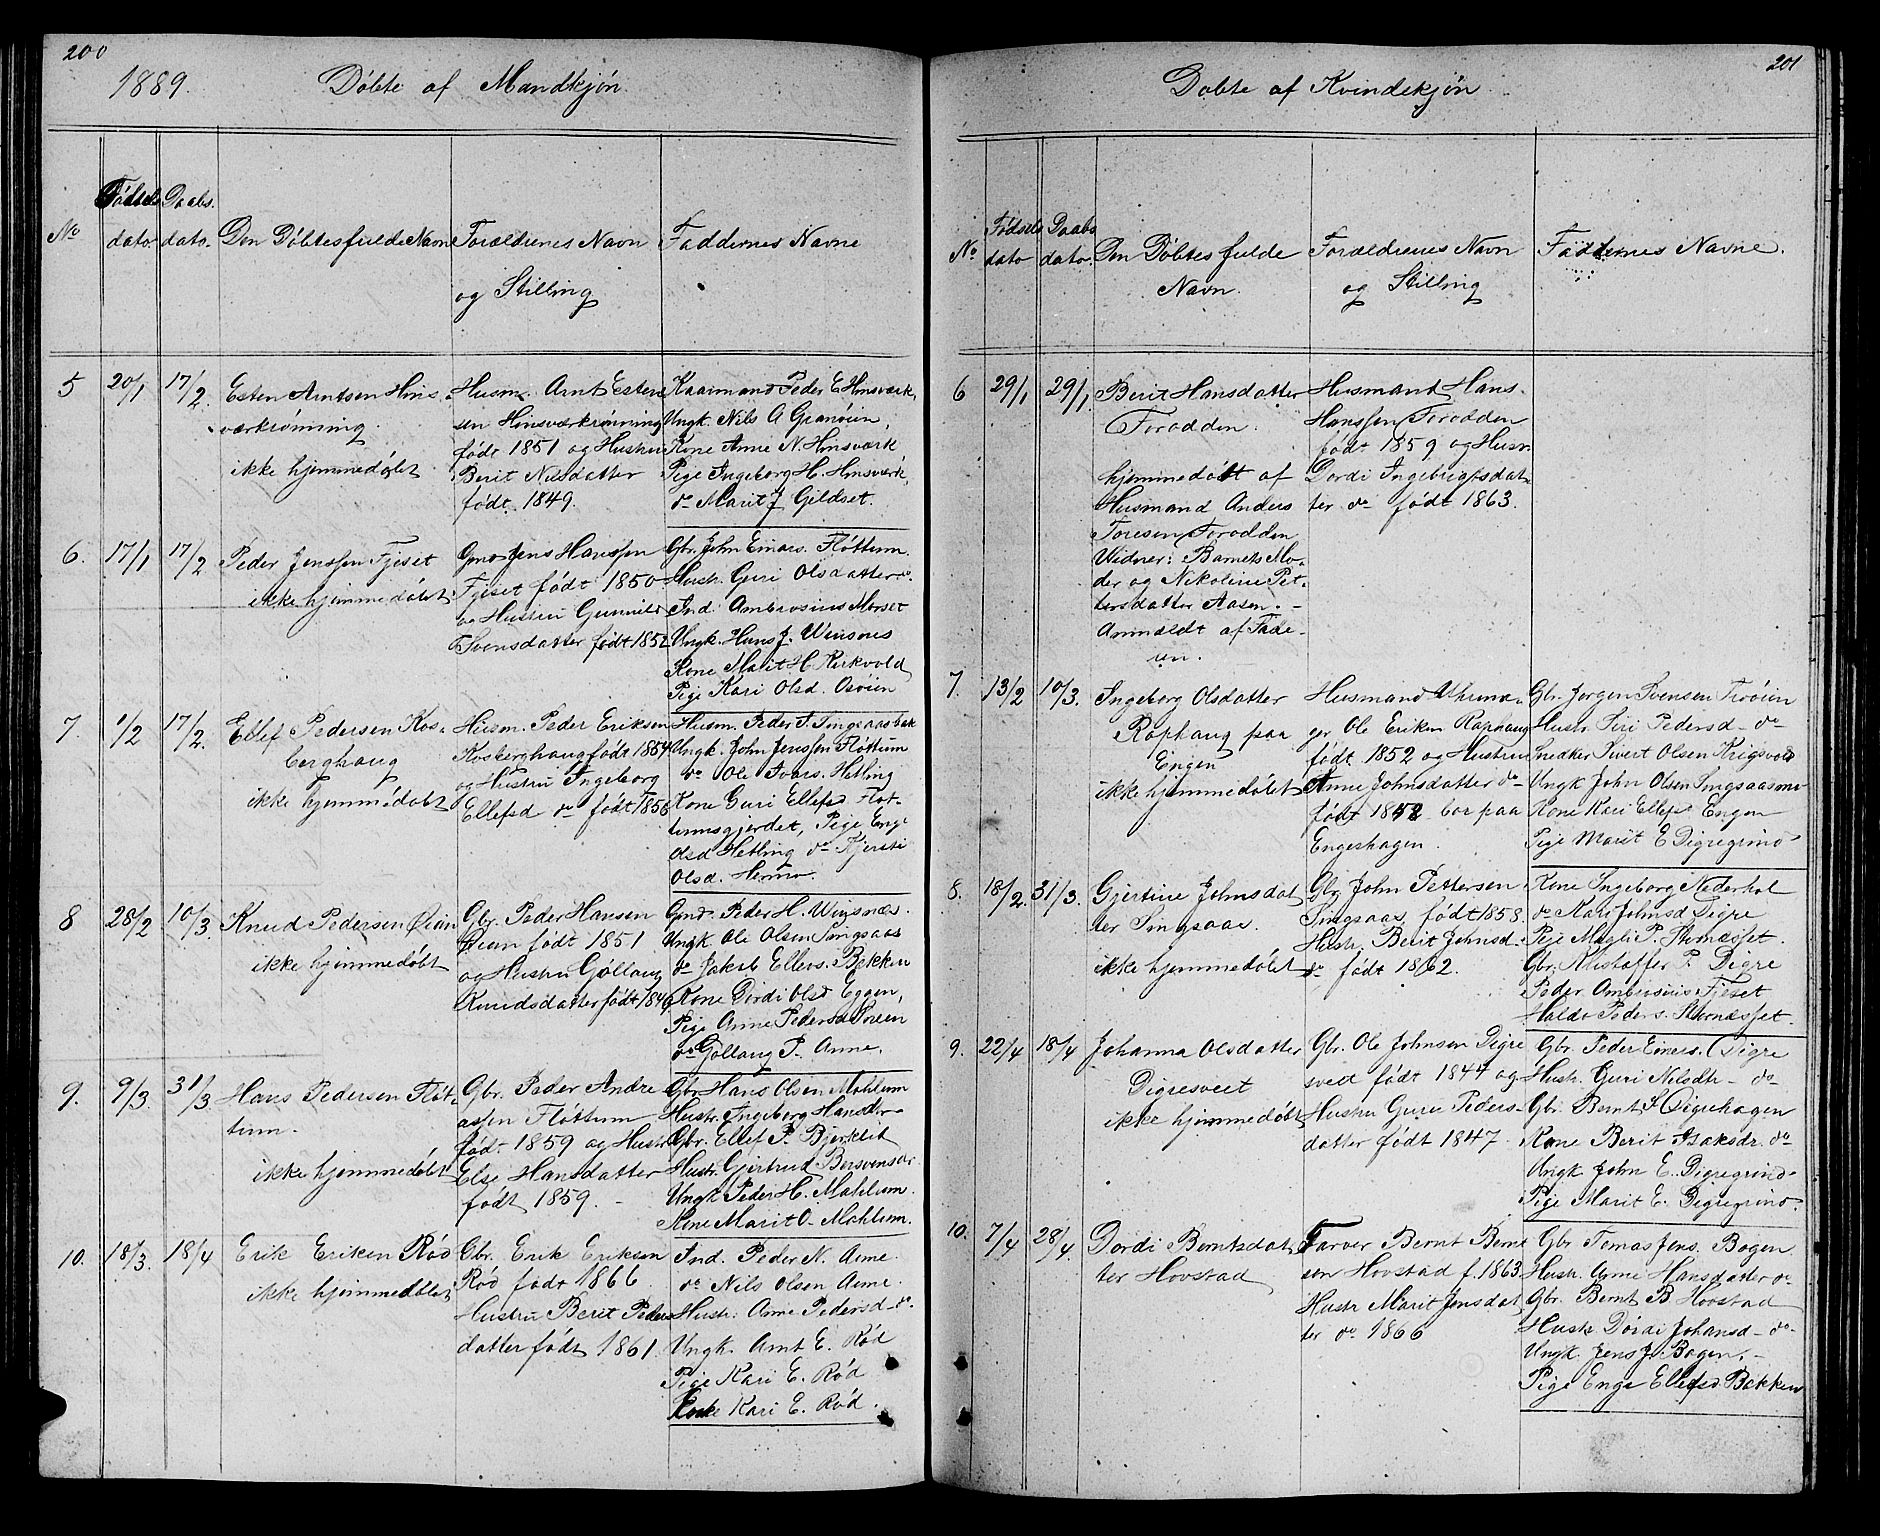 200
1889.
Döbte af Mandkjön
No
Födsels dato
Daabs. dato.
Den Döbtes fulde Navn
Forældrenes Navn
og Stilling
Faddernes Navne
5
20/1
17/2.
Esten Arntsen Hins-
værkrönning.
ikke hjemmedöbt
Husm. Arnt Esten-
sen Hinsværkrönning
födt 1851 og Hustru
Berit Nilsdatter
födt. 1849.
Kaarmand Peder E Hinsværk,
Ungk. Nils A Granöien,
Kone Anne N. Hinsværk
Pige Ingeborg H. Hinsværk,
do Marit J Gildset.
6.
17/1
17/2
Peder Jenssen Fjeset
ikke hjemmedöbt
Gmd Jens Hanssen
Fjeset födt 1850
og Hustru Gunnild
Svensdatter födt 1852
Gbr. John Einars. Flöttum
Hustr. Guri Olsdatter do.
Ind. Ambrosius Morset
Ungk. Hans J. Winsnes
Kone Marit H. Kirkvold
Pige Kari Olsd. Osöien
7.
1/2
17/2.
Ellef Pedersen Kos-
berghaug
ikke hjemmedöbt
Husm. Peder Eriksen
Kosberghaug födt 1854
og Hustru Ingeborg
Ellefsd do födt 1856
Husm. Peder T. Singsaasbak
Ungk. John Jenssen Flöttum
do Ole Ivars. Hetling
Kone Guri Ellefsd Flöt-
tumsgjerdet, Pige Eng.
Olsd Hetling do Kjersti
Olsd. Hermo.
8
28/2
10/3.
Knud Pedersen Öian
ikke hjemmedöbt
Gbr. Peder Hansen
Öian födt 1851
og Hustru Göllaug
Knudsdatter födt 1846
Gmd. Peder H. Winsnæs.
Ungk Ole Olsen Singsaas
do Jakob Ellers. Bækken
Kone Dordi Olsd Eggen,
Pige Anne Pedersd Sneen
do Göllaug P. Anne.
9.
9/3.
31/3
Hans Pedersen Flöt-
tum.
ikke hjemmedöbt
Gbr. Peder Andre
assen Flöttum
födt. 1859 og Hustr
Else Hansdatter
födt 1859.
Gbr. Hans Olsen Mohlum
Hustr. Ingeborg Hansdr
Gbr. Ellef P. Bjerklit
Hustr. Gjertrud Bersvensdr
Ungk. Peder H. Mohlum.
Kone Marit O. Mohlum.
10.
18/3.
18/4
Erik Eriken Röd
ikke hjemmedöbt
Gbr. Erik Eriksen
Röd födt 1866
Hustru Berit Peders
datter födt 1861
Ind. Peder N. Aune
do Nils Olsen Aune.
Hustr. Anne Pedersd do.
Ungk. Arnt E. Röd
Pige Kari E. Röd
Enke Kari E. Röd.
201
Döbte af Kvindekjön
No
Födsels dato
Daabs dato.
Den Döbtes fulde
Navn.
Forældrenes Navn
og Stilling
Faddernes Navne.
6
29/1
29/1.
Berit Hansdatter
Forodden.
hjemmedöbt af
Husmand Anders
Toresen Forodden
Widner: Barnets Mo-
der og Nikoline Pet-
tersdatter Aasen.
Anmeldt af Fade-
ren.
Husmand Hans
Hanssen Forodden
födt 1859 og Hustr.
Dordi Ingebrigtsdat-
ter do födt 1863.
7.
13/2
10/3.
Ingeborg Olsdatter
Raphaug paa
Engen
ikke hjemmedöbt
Husmand Uhrma-
ger Ole Eriken Raphaug
födt 1852 og Hustru
Anne Johnsdatter do
födt 1852 bor paa
Engeshagen.
Gbr. Jörgen Svensen Tröien
Hustr. Siri Pedersd do
Snedker Sivert Olsen Krigsvold
Ungk John Olsen Singsaasmo
Kone Kari Ellefsd Engen
Pige Marit E Digregrind
8.
18/2.
31/3.
Gjertine Johnsdat
ter Singsaas.
ikke hjemmedöbt
Gbr. John Pettersen
Singsaas, födt 1858.
Hustr. Berit Johnsd.
do födt 1862.
Kone Ingeborg Nederhol
do Kari Johnsd Digre
Pige Magli P. Storrøsset.
Gbr. Kristoffer P. Digre
Peder Ambrosius Fjeset
Haldo Peders. Storrøsset.
9.
22/4
18/4
Johanna Olsdatter
Digresveet
ikke hjemmedöbt
Gbr. Ole Johnsen Digre
sveet födt 1844 og
Hustru Guru Peders-
datter födt 1847.
Gbr. Peder Einers. Digre
Hustr. Guri Nilsdtr do
Gbr. Bernt S Digrehagen
Kone Berit Isaksdr. do
Ungk John E. Digregrind
Pige Marit E. Digregrind.
10.
7/4
28/4.
Dordi Berntsdat
ter Hovstad
Farver Bernt Bernt
sen Hovstad f. 1863
Hustr Marit Jensdat
ter do 1866
Gbr Tomas Jens. Bogen
Hustr. Anne Hansdatter do
Gbr. Bernt B Hovstad
Hustr Dordi Johansd do
Ungk. Jens J. Bogen.
Pige Enge Ellefsd Bækken